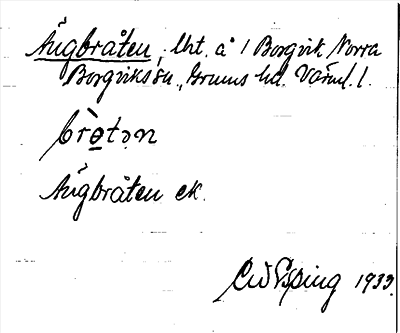 Ängbråten, lht. å 1 Borgvik Norra
Borgviks sn., Grums hd. Värml. l.
bro̱tən
Ängbråten ek.
1933.